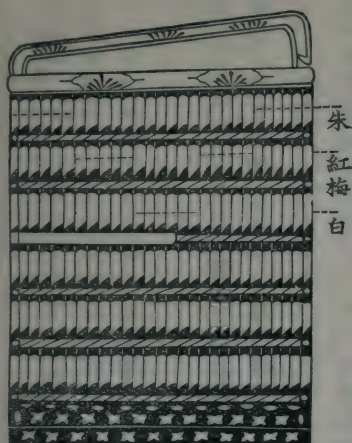 朱
紅梅
白